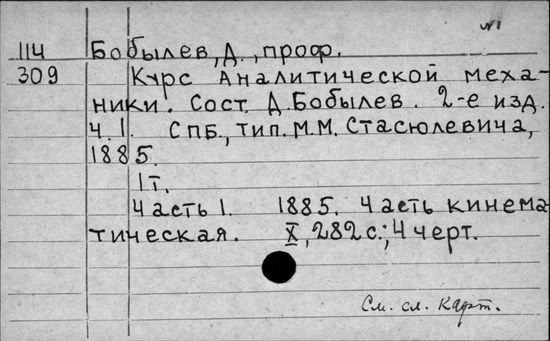 №1
114 Бобылев, Д., проф.
309 Курс аналитической меха-
ники. Сост. Д. Бобылев. 2-е изд.
Ч. 1. СПБ., тип. М.М. Стасюлевича,
1885.
1 т.
Часть 1. 1885. Часть кинема
тическая. X, 282 с.; 4 черт.
См. сл. карт.